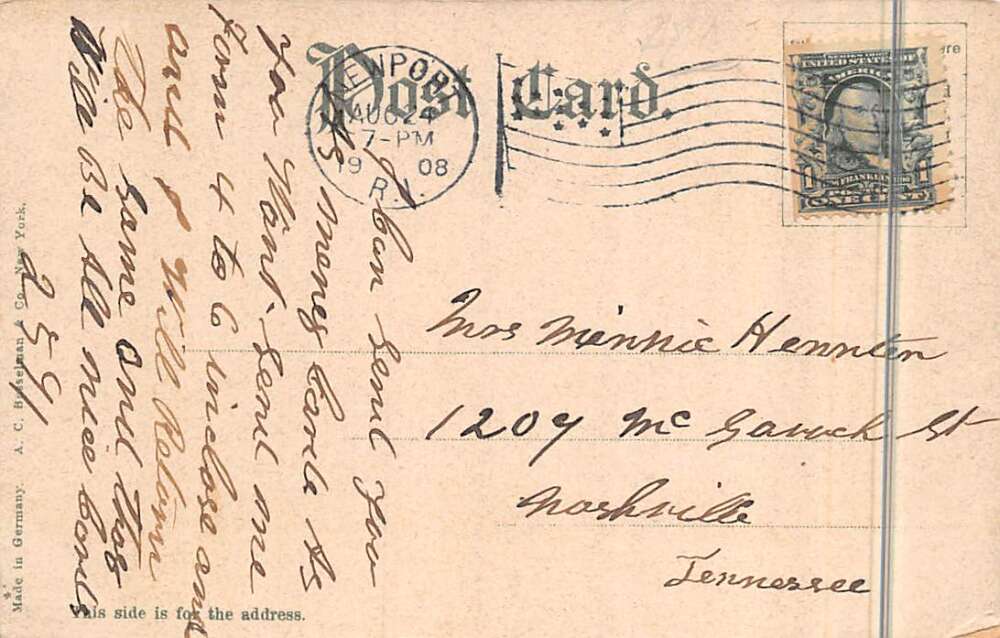 Post Card.
NEWPORT
AUG 24
7-PM
19 08
R.I.
ONE CENT
I Can Send you
As meney Cards As
you Want. Send me
from 4 to 6 inclose and
and I Will Return
The Same and
Will Be All nice Cards
2591
Mrs Minnie
1207 Mc Gavock St
Nashville
Tennessee
Made in Germany. A. C. Bosselman & Co., New York.
This side is for the address.